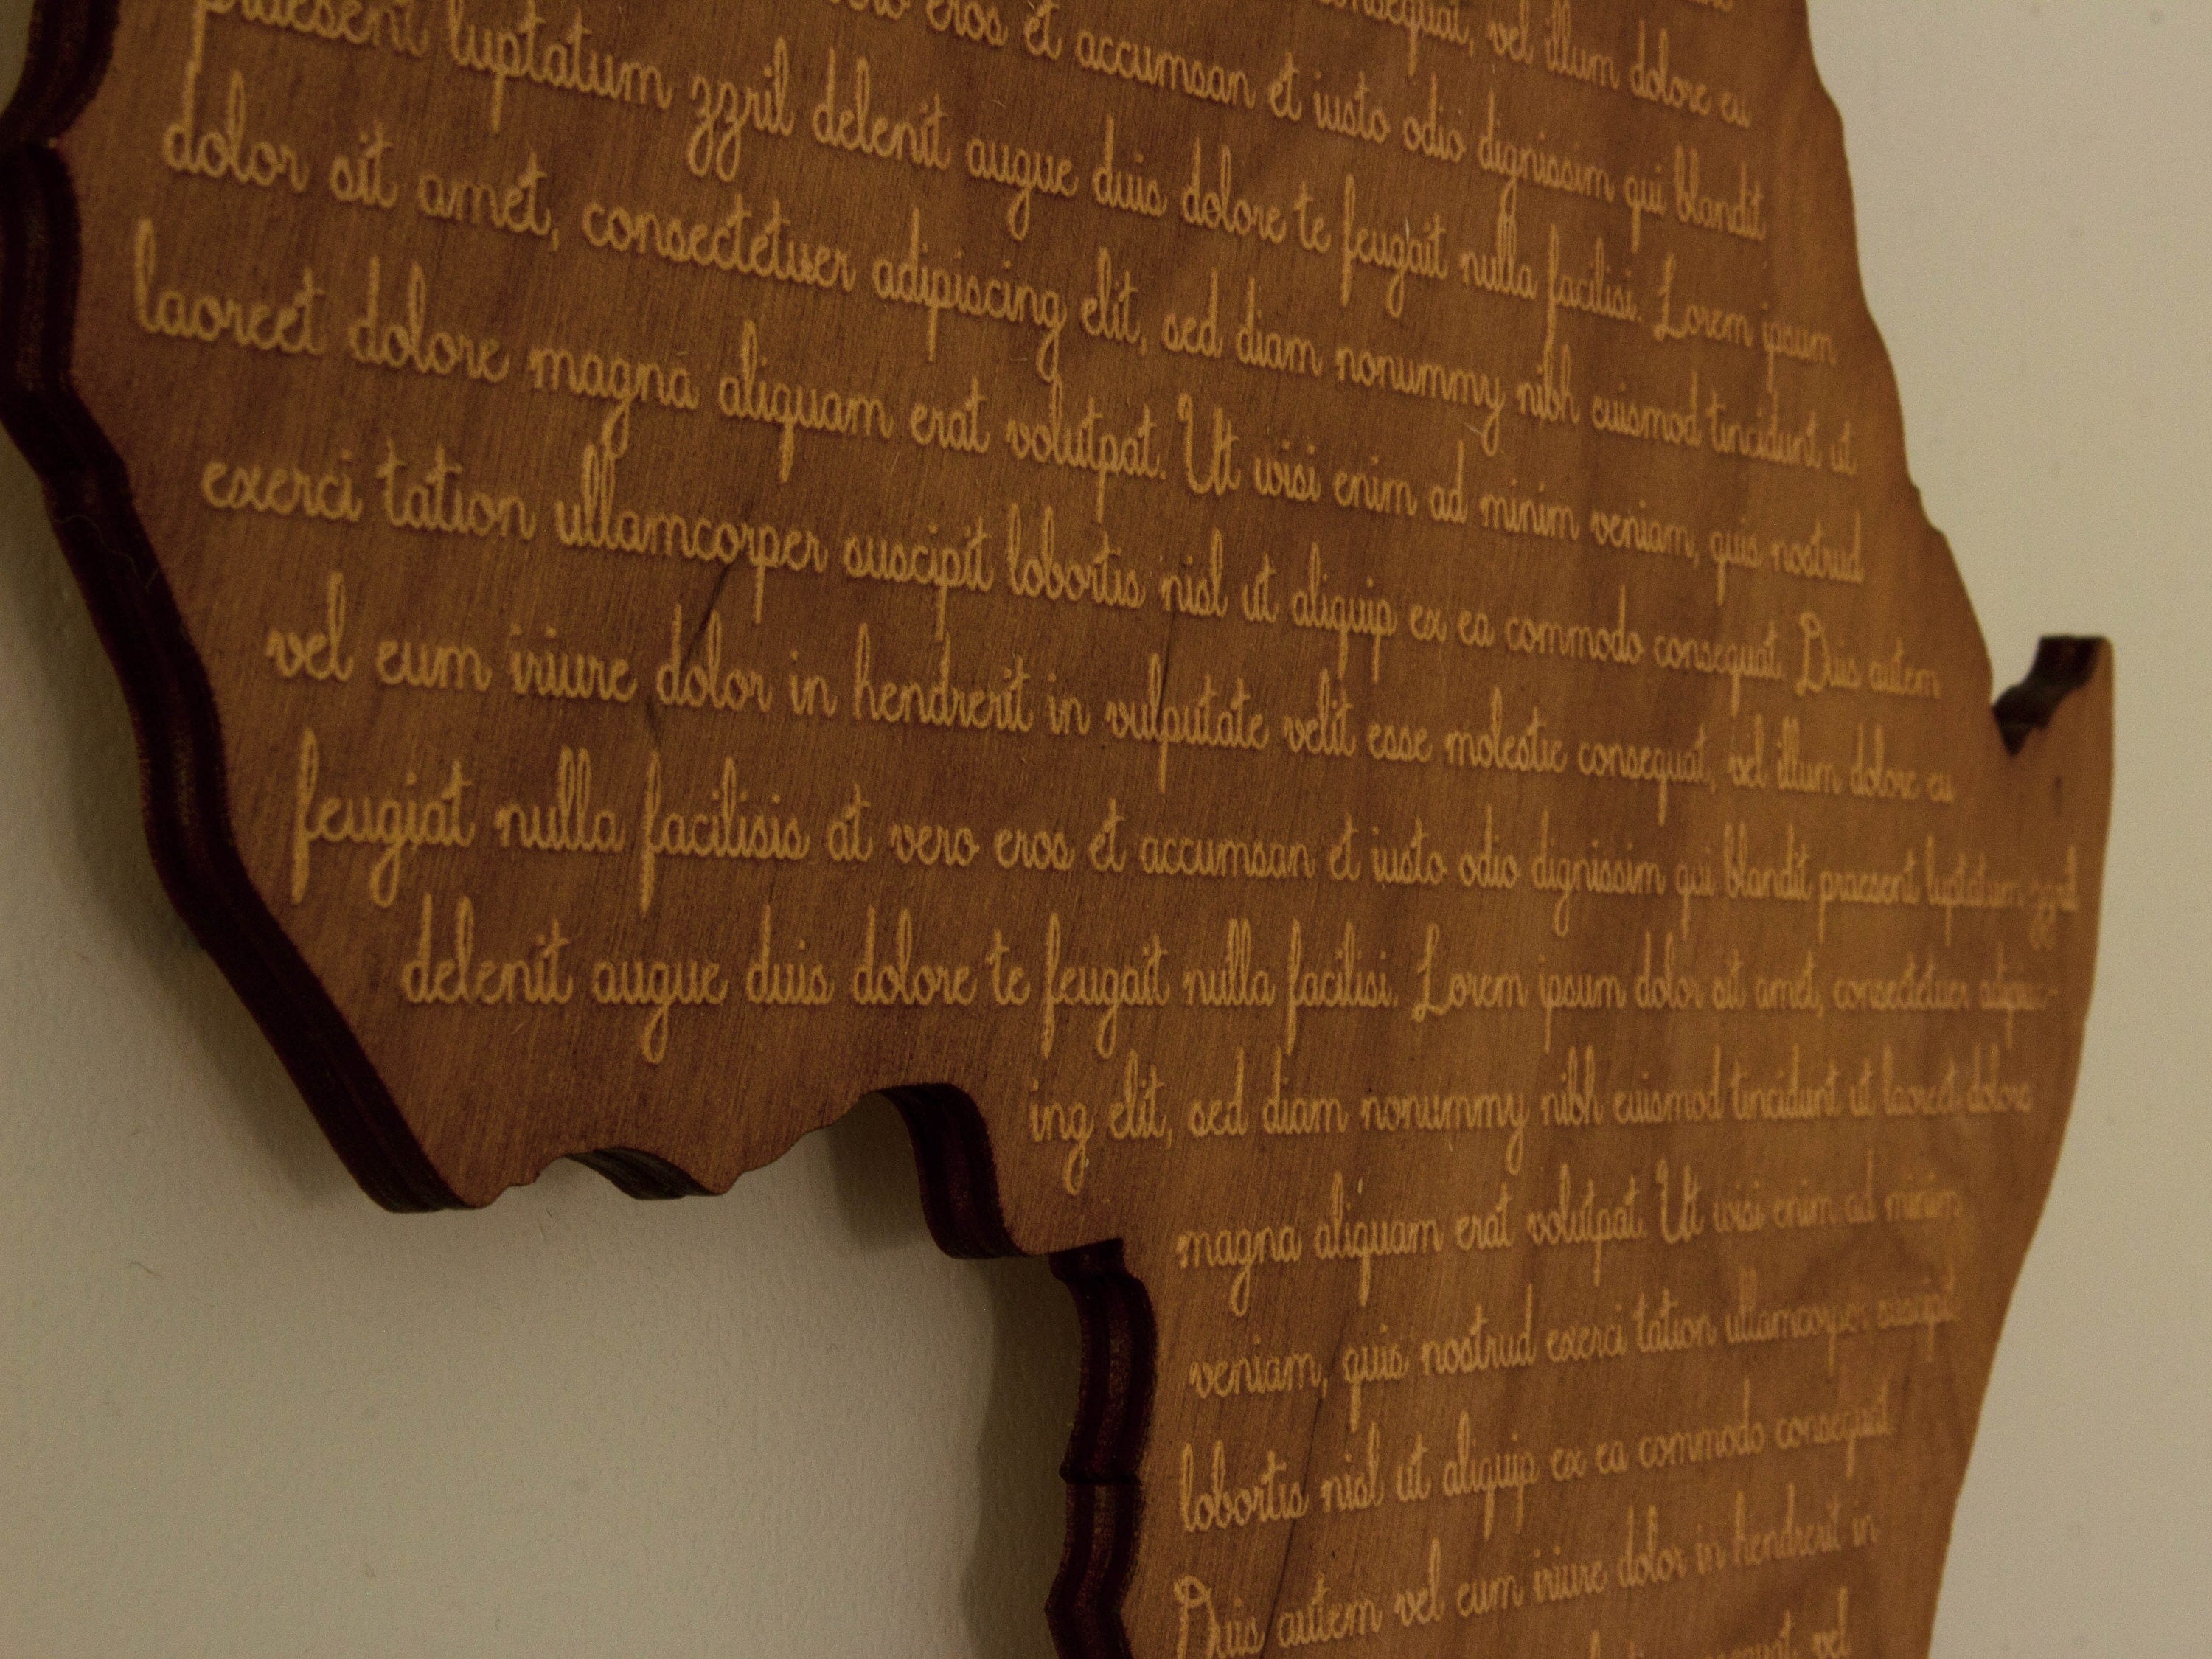 consequat, vel illum dolore eu
vero eros et accumsan et iusto odio dignissim qui blandit
praesent luptatum zzril delenit augue duis dolore te feugait nulla facilisi. Lorem ipsum
dolor sit amet, consectetuer adipiscing elit, sed diam nonummy nibh euismod tincidunt ut
laoreet dolore magna aliquam erat volutpat. Ut wisi enim ad minim veniam, quis nostrud
exerci tation ullamcorper suscipit lobortis nisl ut aliquip ex ea commodo consequat. Duis autem
vel eum iriure dolor in hendrerit in vulputate velit esse molestie consequat, vel illum dolore eu
feugiat nulla facilisis at vero eros et accumsan et iusto odio dignissim qui blandit praesent luptatum zzril
delenit augue duis dolore te feugait nulla facilisi. Lorem ipsum dolor sit amet, consectetuer adipisc-
ing elit, sed diam nonummy nibh euismod tincidunt ut laoreet dolore
magna aliquam erat volutpat. Ut wisi enim ad minim
veniam, quis nostrud exerci tation ullamcorper suscipit
lobortis nisl ut aliquip ex ea commodo consequat.
Duis autem vel eum iriure dolor in hendrerit in
vel